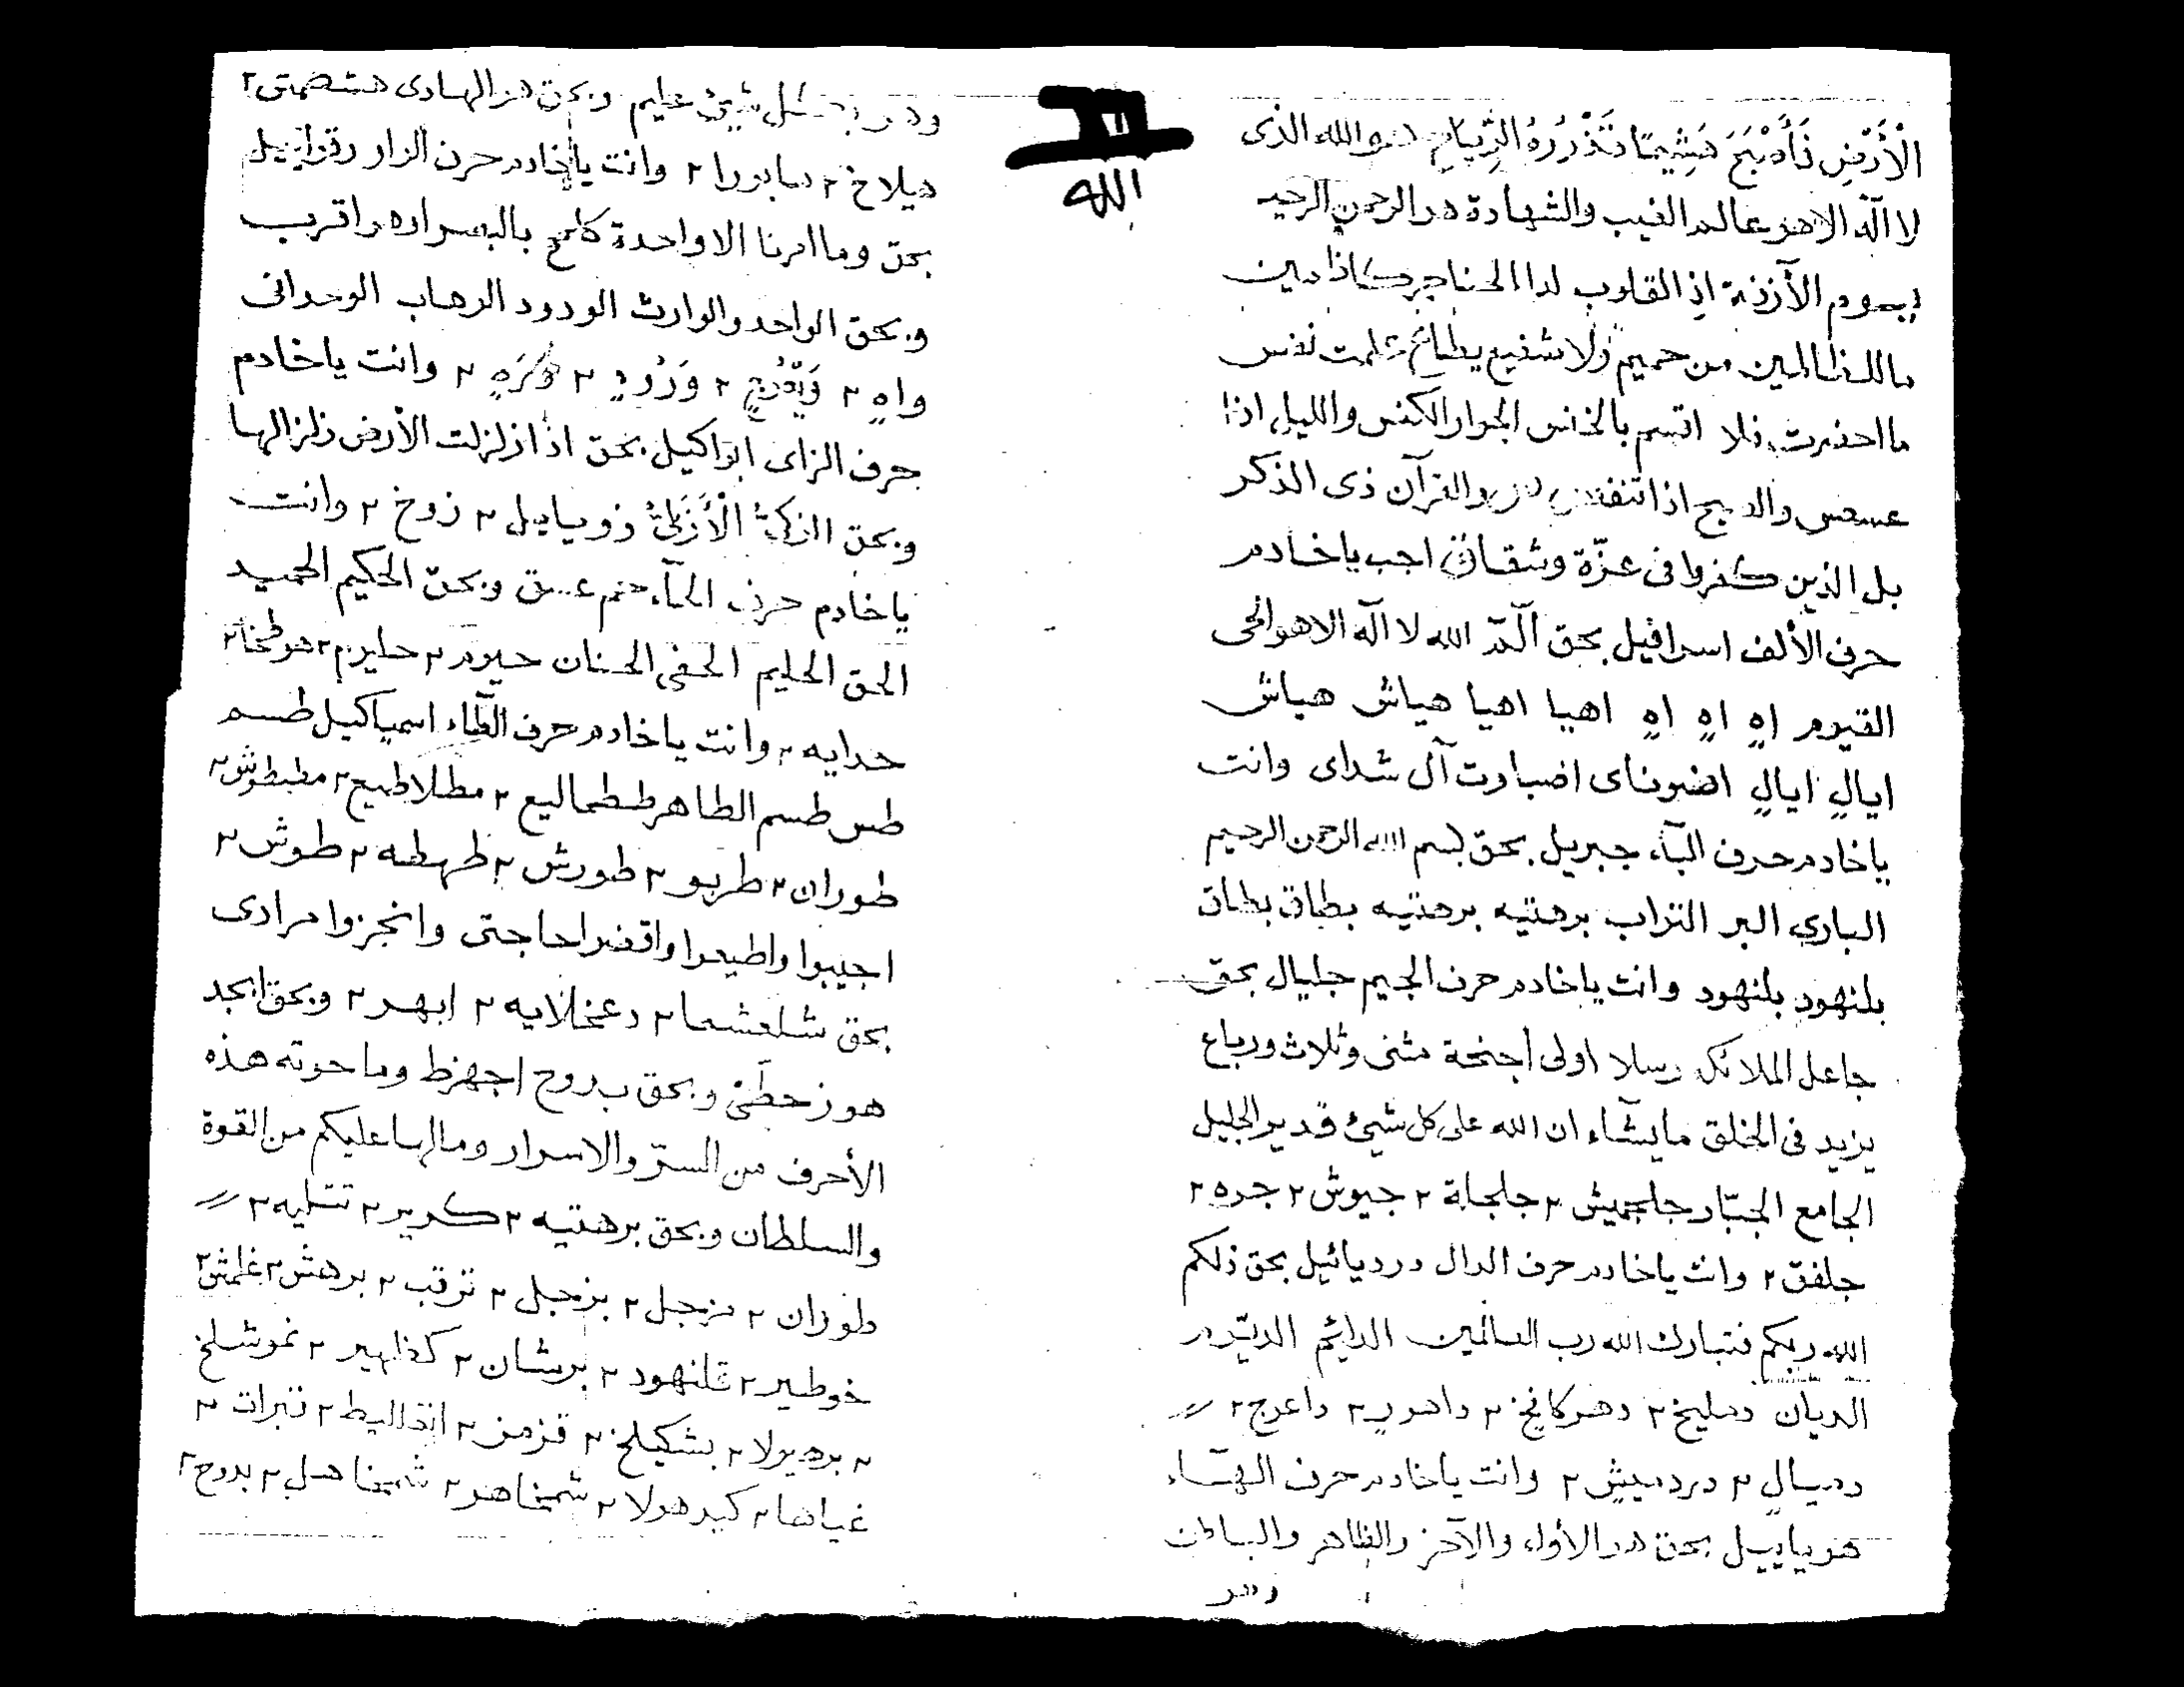 الْأَرْضِ فَأَصْبَحَ هَشِيمًا تَذْرُوهُ الرِّيَاحِ هو الله الذى
لا اله الا هو عالم الغيب والشهادة هو الرحمن الرحيم
يوم الأزفة اذ القلوب لدا الحناجر كاظمين
ما للظالمين من حميم ولا شفيع يطاع علمت نفس
ما احضرت فلا اقسم بالخنس الجوار الكنس والليل اذا
عسعس والصبح اذا تنفس ص والقرآن ذى الذكر
بل الذين كفروا فى عزّة وشقاق اجب يا خادم
حرف الألف اسرافيل بحق آلم الله لا اله الا هو الحى
القيوم اهٍ اهٍ اهٍ اهيا اهيا هياش هياش
ايالٍ ايالٍ اضوناى اصباوت آل شداى وانت
يا خادم حرف البآء جبريل بحق بسم الله الرحمن الرحيم
البارى البر التواب برهتيه برهتيه بطاق بطاق
بلنهود بلنهود وانت يا خادم حرف الجيم جليال بحق
جاعل الملائكه رسلا اولى اجنحة مثنى وثلاث ورباع
يزيد فى الخلق ما يشاء ان الله على كل شيئ قدير الجليل
الجامع الجبّار جلجميش ٢ جلجلة ٢ جيوش ٢ جره ٢
جلفق ٢ وانت يا خادم حرف الدال دردیائیل بحق ذلكم
الله ربكم فتبارك الله رب العالمين الدائم الديّوم
الديان دمليخ ٢ دهوكانخ ٢ داهور ٢ داعوج ٢
دميالٍ ٢ دردميشٍ ٢ وانت يا خادم حرف الهآء
هويابيل بحق هو الأول والآخر والظاهر والباطن
وهو
الله
وهو بكل شيئ عليم وبحق هو الهادى ٢
هيلاخ ٢ ٢ وانت يا خادم حرف الواو رقيائيل
بحق وما امرنا الا واحدة كلمح بالبصر او هو اقرب
وبحق الواحد والوارث الودود الوهاب الوحدانى
واهٍ ٢ ٢ وَرُودٍ ٢ ٢ وانت يا خادم
حرف الزاى ابواكيل بحق اذا زلزلت الأرض زلزالها
وبحق الزكىُّ الْأَزَلِىُّ زويايل ٢ زوخ ٢ وانت
يا خادم حرف الحآء حم عسق وبحق الحكيم الحميد
الحق الحليم الحفى الحنان حيوم ٢ ٢
حدايه ٢ وانت يا خادم حرف الطآء اسمياكيل طسم
طس طسم الطاهر طظماليع ٢ مطلاطيع ٢ مطيطوش ٢
طوران ٢ طربو ٢ طورش ٢ طهطه ٢ طوش ٢
اجيبوا واطيعوا واقضوا حاجتى وانجزوا مرادى
بحق شلعشما ٢ دعخلايه ٢ ابهر ٢ وبحق ابجد
هوز حطى وبحق بدوح اجهزط وما حوته هذه
الأحرف من السرّ والاسرار وما لها عليكم من القوة
والسلطان وبحق برهتيه ٢ كرير ٢ تتليه ٢
طوران ٢ مزجل ٢ بزجل ٢ ترقب ٢ برهش ٢ غلمش ٢
خوطير ٢ قلنهود ٢ برشان ٢ كظهير ٢ نموشلخ
٢ برهيولا ٢ بشكيلخ ٢ قزمز ٢ انغلليط ٢ قبرات ٢
غياها ٢ كيدهولا ٢ شمخاهر ٢ شمخاهل ٢ بدوح ٢